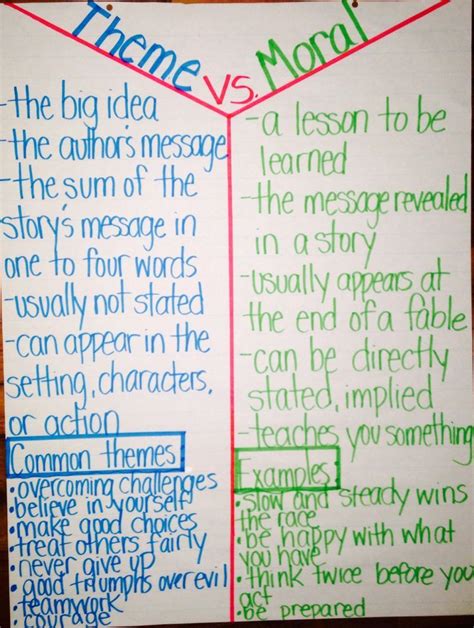 Theme vs. Moral
-the big idea
-the author's message
-the sum of the
story's message in
one to four words
-usually not stated
-can appear in the
setting, characters,
or action
Common themes
•overcoming challenges
•believe in yourself
•make good choices
•treat others fairly
•never give up
•good triumphs over evil
•teamwork
•courage
-a lesson to be
learned
-the message revealed
in a story
-usually appears at
the end of a fable
-can be directly
stated, implied
-teaches you something
Examples
•slow and steady wins
the race
•be happy with what
you have
•think twice before you
act
•be prepared